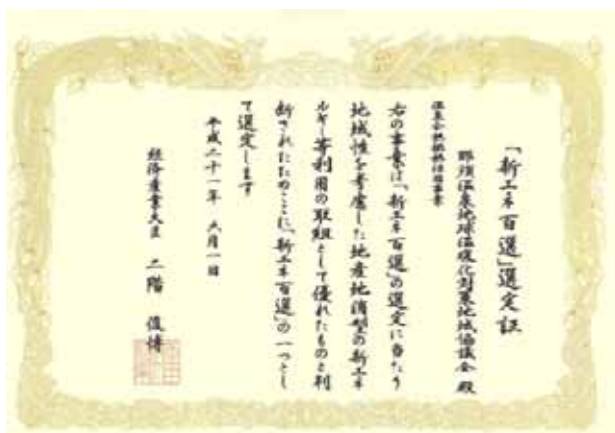 「新エネ百選」選定証
那須温泉地球温暖化対策地域協議会 殿
右の事業は「新エネ百選」の選定に当たり
地域性を考慮した地産地消型の新エネ
ルギー等利用の取組として優れたものと判
断されたためここに、「新エネ百選」の一つとし
て選定します
平成二十一年 六月一日
経済産業大臣 二階 俊博